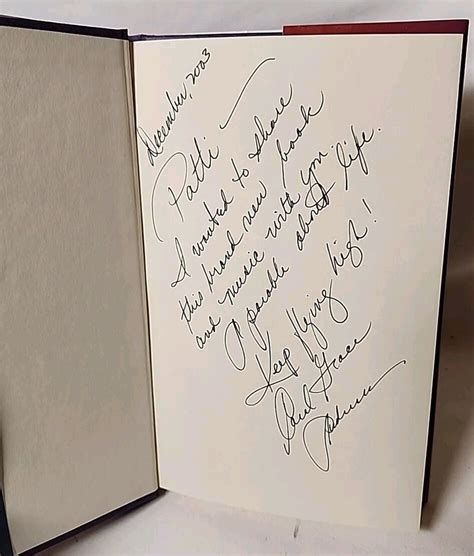 December, 2003
Patti —
I wanted to share
this brand new book
and music with you.
A parable about life.
Keep flying high!
Grace